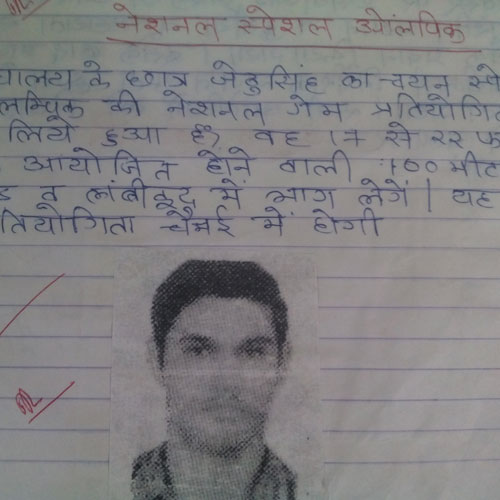 नेशनल स्पेशल ओलंपिक
यालय के छात्र जेठुसिंह का चयन स्पे
लम्पिक की नेशनल गेम प्रतियोगित
लिये हुआ है, वह 17 से 22 फ
आयोजित होने वाली 100 मीट
व लांबीकूद में भाग लेगें | यह
तियोगिता चैन्नई में होगी